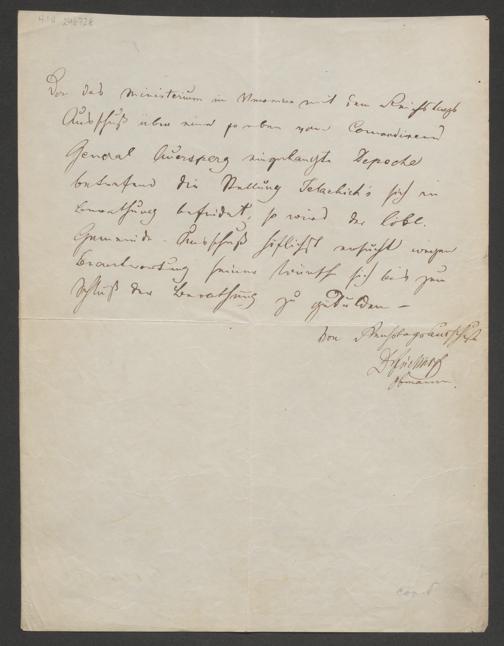 Da das Ministerium in Verein mit dem Reichstags
Ausschuß über eine so eben vom Comandirend
General Auersperg eingelangte Depeche
betrefend die Stellung Jelachich's sich in
Berathung befindet, so wird der löbl.
Gemeinde-Ausschuß höflichst ersucht wegen
Beantwortung seiner sich bis zum
Schluß der Berathung zu gedulden –
Vom Reichstagsausschuß
Obmann.